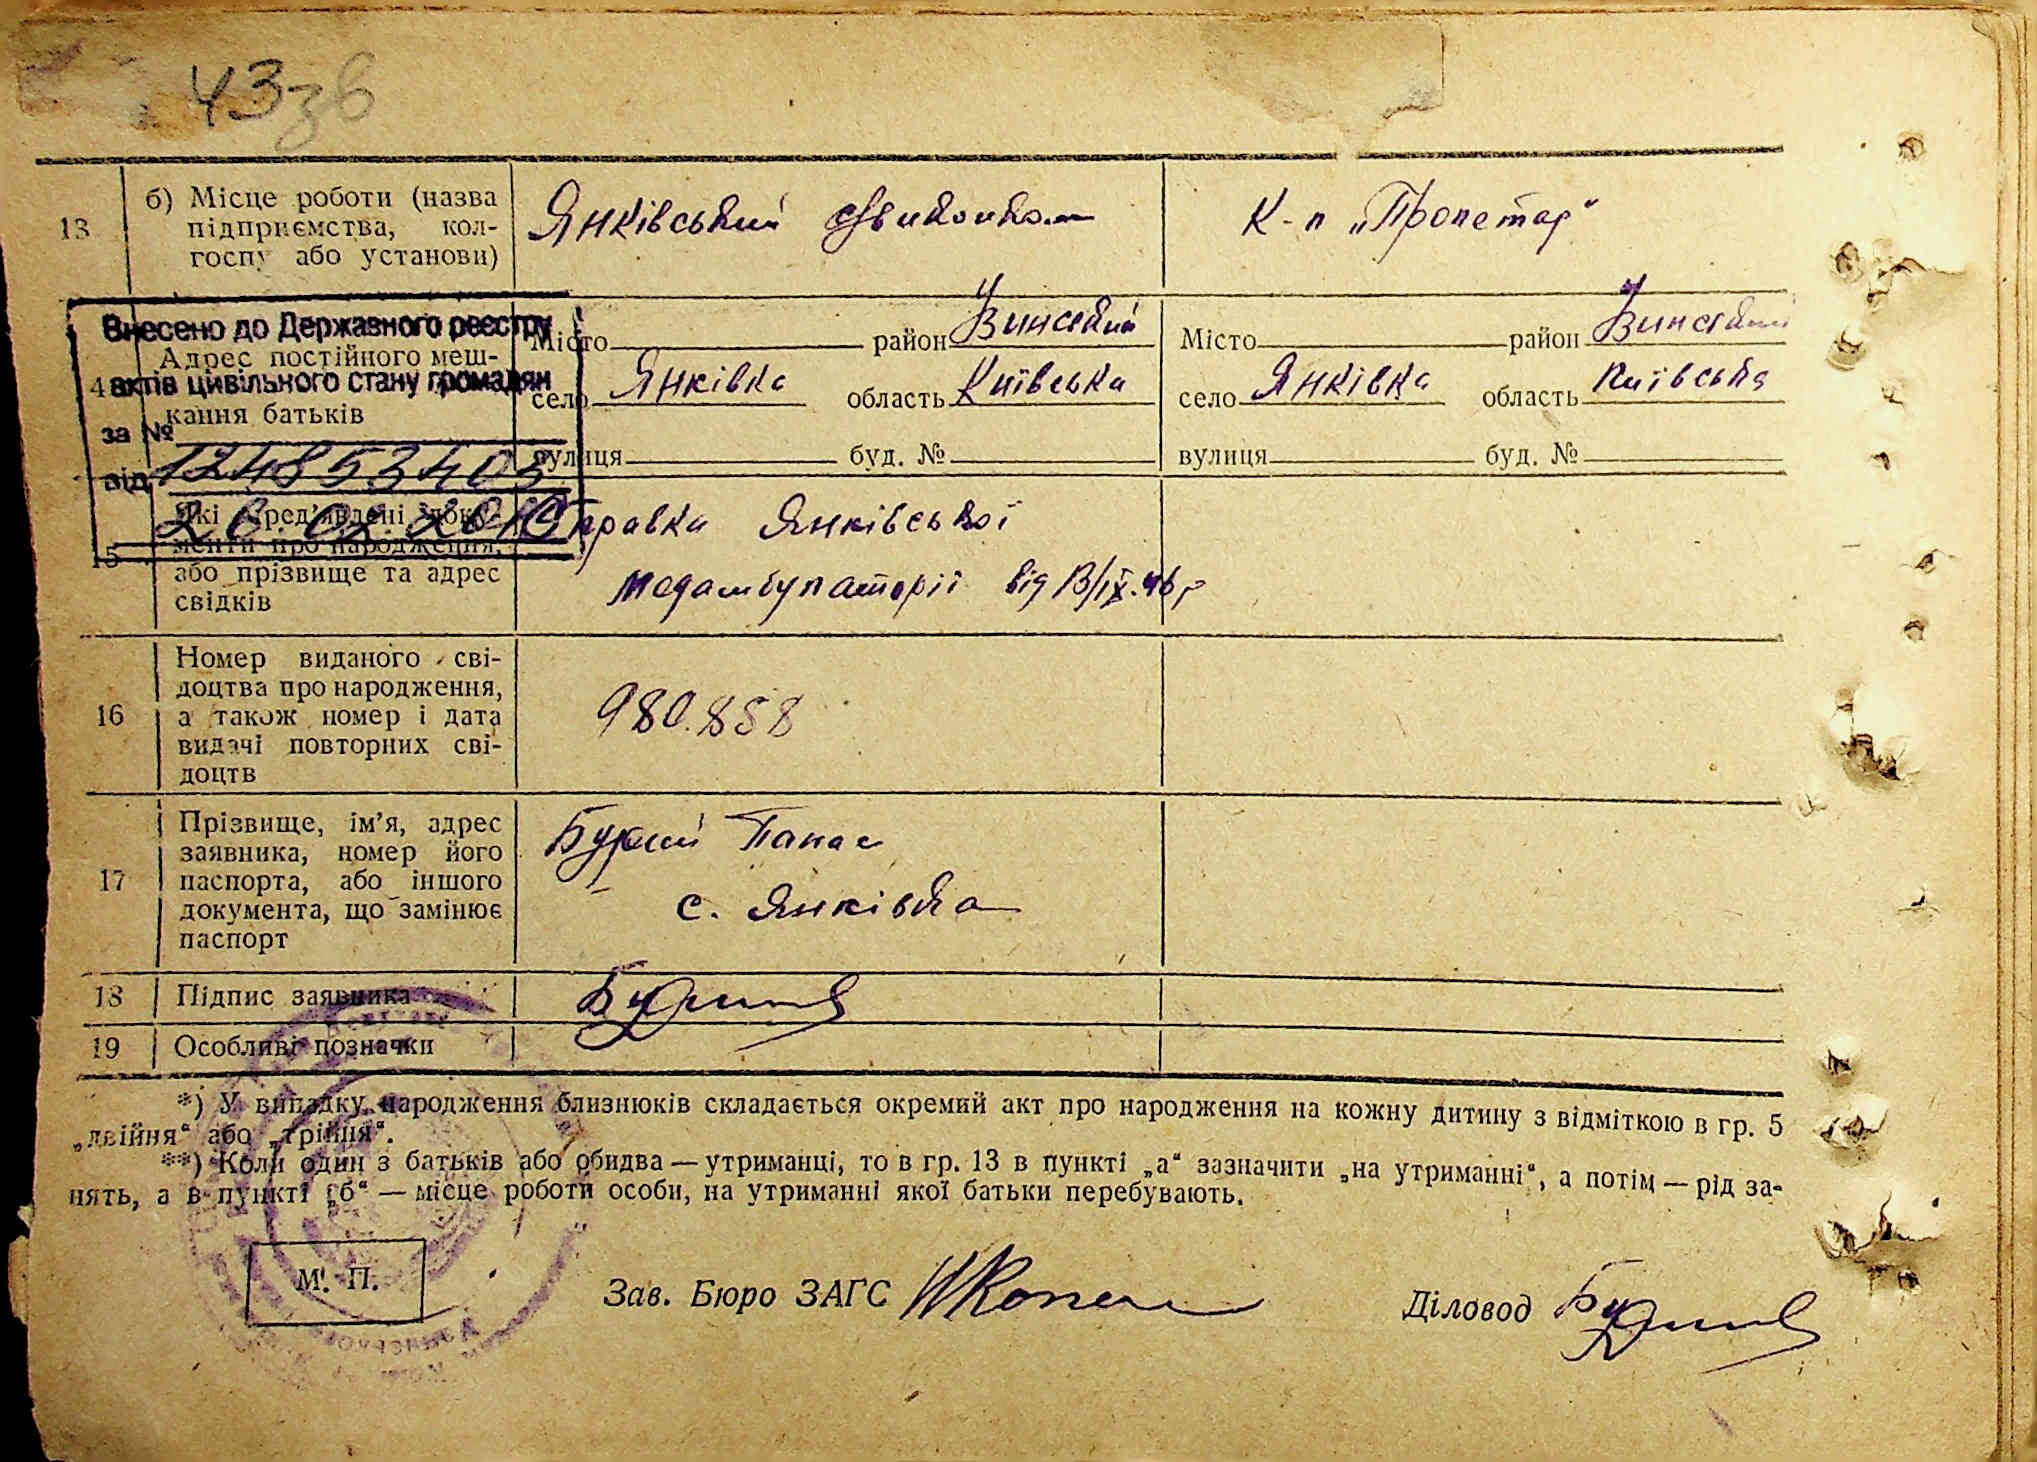 43зв
13
б) Місце роботи (назва
підприємства, кол-
госпу або установи)
Янківський
К-п „Пролетар“
Внесено до Державного реєстру
актів цивільного стану громадян
за №
від 1248534
Адрес постійного меш-
кання батьків
Місто район Зинський
село Янківка область Київська
вулиця буд. №
Місто район Зинський
село Янківка область Київська
вулиця буд. №
15
Які пред'явлені доку-
менти про народження,
або прізвище та адрес
свідків
Справка Янківської
медамбулаторії від 13/IX.46 р
16
Номер виданого сві-
доцтва про народження,
а також номер і дата
видачі повторних сві-
доцтв
980.858
17
Прізвище, ім'я, адрес
заявника, номер його
паспорта, або іншого
документа, що замінює
паспорт
Панас
с. Янківка
18 Підпис заявника
19 Особливі позначки
*) У випадку народження близнюків складається окремий акт про народження на кожну дитину з відміткою в гр. 5
„двійня“ або „трійня“.
**) Коли один з батьків або обидва — утриманці, то в гр. 13 в пункті „а“ зазначити „на утриманні“, а потім — рід за-
нять, а в пункті „б“ — місце роботи особи, на утриманні якої батьки перебувають.
М. П.
Зав. Бюро ЗАГС
Діловод